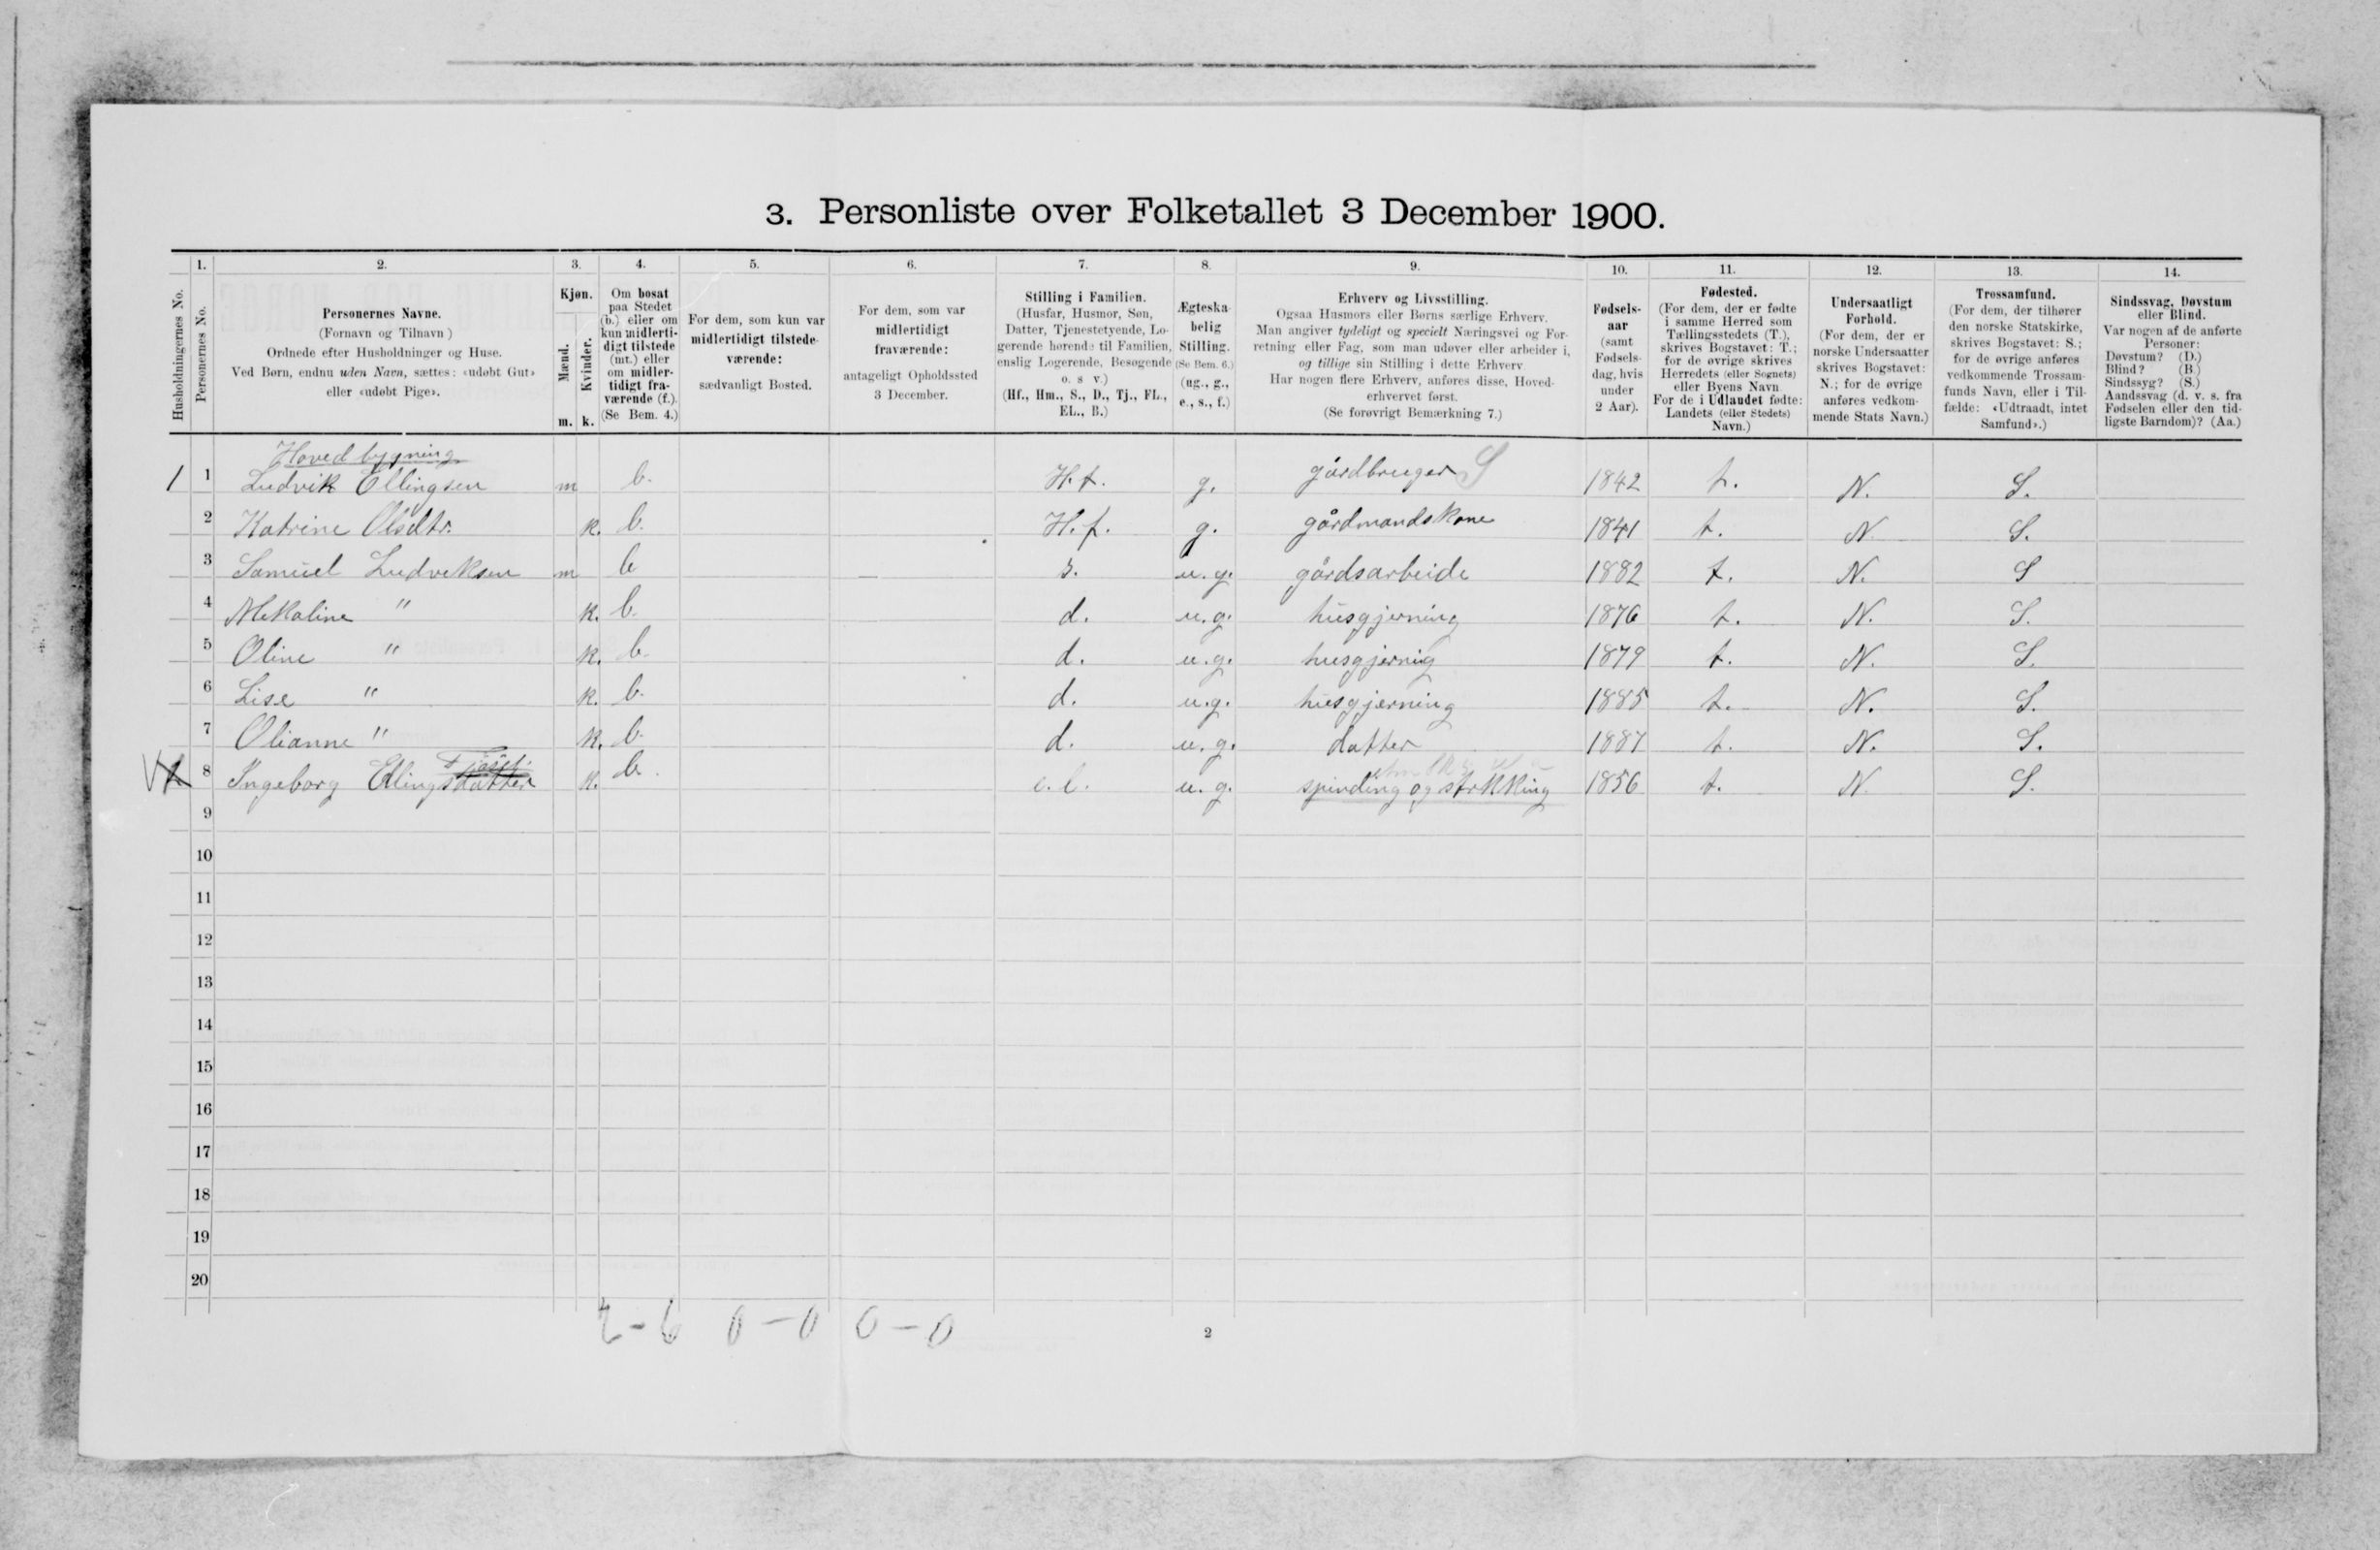 3. Personliste over Folketallet 3 December 1900.
1. 2. 3. 4. 5. 6. 7. 8. 9. 10. 11. 12. 13. 14.
Husholdningernes No.
Personernes No.
Personernes Navne.
(Fornavn og Tilnavn )
Ordnede efter Husholdninger og Huse.
Ved Børn, endnu uden Navn, sættes: «udøbt Gut»
eller «udøbt Pige».
Kjøn.
Mænd.
Kvinder.
m. k.
Om bosat
paa Stedet
(b.) eller om
kun midlerti-
digt tilstede
(mt.) eller
om midler-
tidigt fra-
værende (f.).
(Se Bem. 4.)
For dem, som kun var
midlertidigt tilstede-
værende:
sædvanligt Bosted.
For dem, som var
midlertidigt
fraværende:
antageligt Opholdssted
3 December.
Stilling i Familien.
(Husfar, Husmor, Søn,
Datter, Tjenestetyende, Lo-
gerende hørende til Familien,
enslig Logerende, Besøgende
o. s v.)
(Hf., Hm., S., D., Tj., FL.,
EL., B.)
Ægteska-
belig
Stilling.
(Se Bem. 6.)
(ug., g.,
e., s., f.)
Erhverv og Livsstilling.
Ogsaa Husmors eller Børns særlige Erhverv.
Man angiver tydeligt og specielt Næringsvei og For-
retning eller Fag, som man udøver eller arbeider i,
og tillige sin Stilling i dette Erhverv
Har nogen flere Erhverv, anføres disse, Hoved-
erhvervet først.
(Se forøvrigt Bemærkning 7.)
Fødsels-
aar
(samt
Fødsels-
dag, hvis
under
2 Aar).
Fødested.
(For dem, der er fødte
i samme Herred som
Tællingsstedets (T.),
skrives Bogstavet: T.;
for de øvrige skrives
Herredets (eller Sognets)
eller Byens Navn
For de i Udlandet fødte:
Landets (eller Stedets)
Navn.)
Undersaatligt
Forhold.
(For dem, der er
norske Undersaatter
skrives Bogstavet:
N.; for de øvrige
anføres vedkom-
mende Stats Navn.)
Trossamfund.
(For dem, der tilhører
den norske Statskirke,
skrives Bogstavet: S.;
for de øvrige anføres
vedkommende Trossam-
funds Navn, eller i Til-
fælde: «Udtraadt, intet
Samfund».)
Sindssvag, Døvstum
eller Blind.
Var nogen af de anførte
Personer:
Døvstum? (D.)
Blind? (B.)
Sindssyg? (S.)
Aandssvag (d. v. s. fra
Fødselen eller den tid-
ligste Barndom)? (Aa.)
Hovedbygning
1 1 Ludvik Ellingsen m b. H.f. g. gårdbruger S 1842 t. N. S.
2 Katrine Olsdtr. k. b. H.f. g. gårdmandskone 1841 t. N. S.
3 Samuel Ludveksen m b s. u.g. gårdsarbeide 1882 t. N. S
4 Mekaline " k. b. d. u.g. husgjerning 1876 t. N. S.
5 Oline " k. b. d. u.g. husgjernig 1879 t. N. S.
6 Lise " k. b. d. u.g. husgjerning 1885 t. N. S.
7 Olianne " k. b. d. u.g. datter 1887 t. N. S.
8 Ingeborg Ellingsdatter k. b. e.l. u.g. spinding og strkking 1856 t. N. S.
9
10
11
12
13
14
15
16
17
18
19
20
2-6 0-0 0-0
2